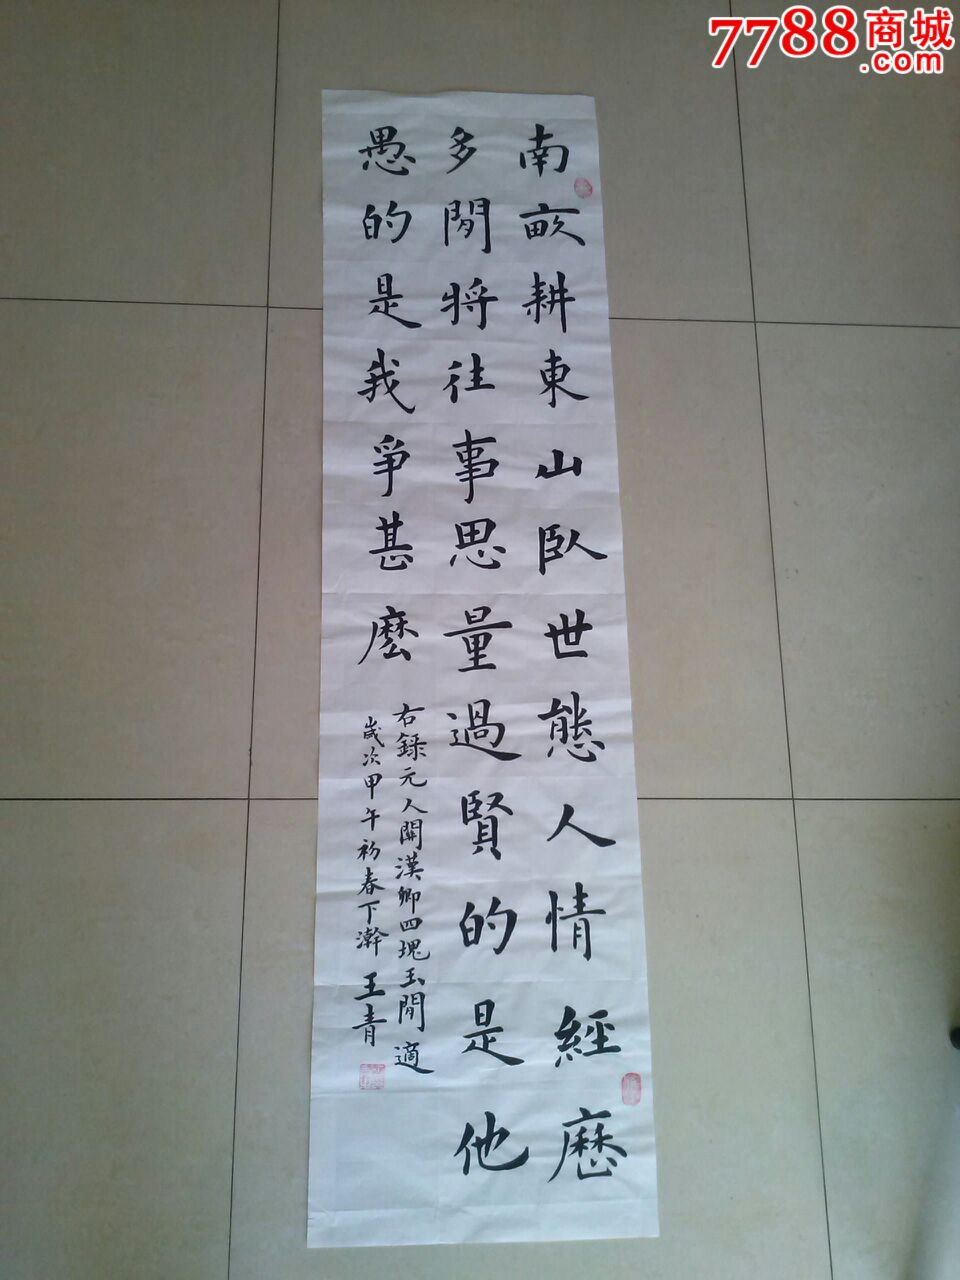 7788商城
.com
南畝耕東山臥世態人情經歷
多閒將往事思量過賢的是他
愚的是我爭甚麽
右錄元人關漢卿四塊玉閒適
歲次甲午初春下澣王青